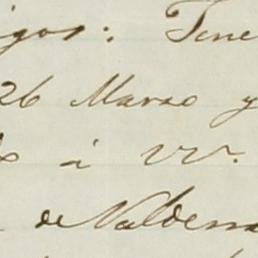 igos: Tene
26 Marzo y
à VV.
de Valdem